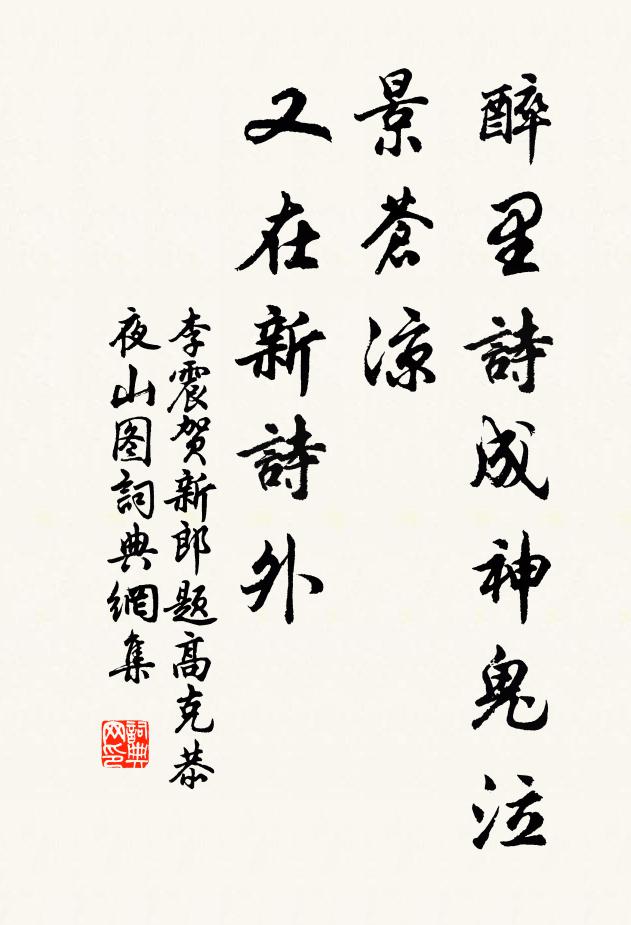 醉里詩成神鬼泣
景蒼涼
又在新詩外
李震贺新郎题高克恭
夜山图詞典網集
詞典
网印